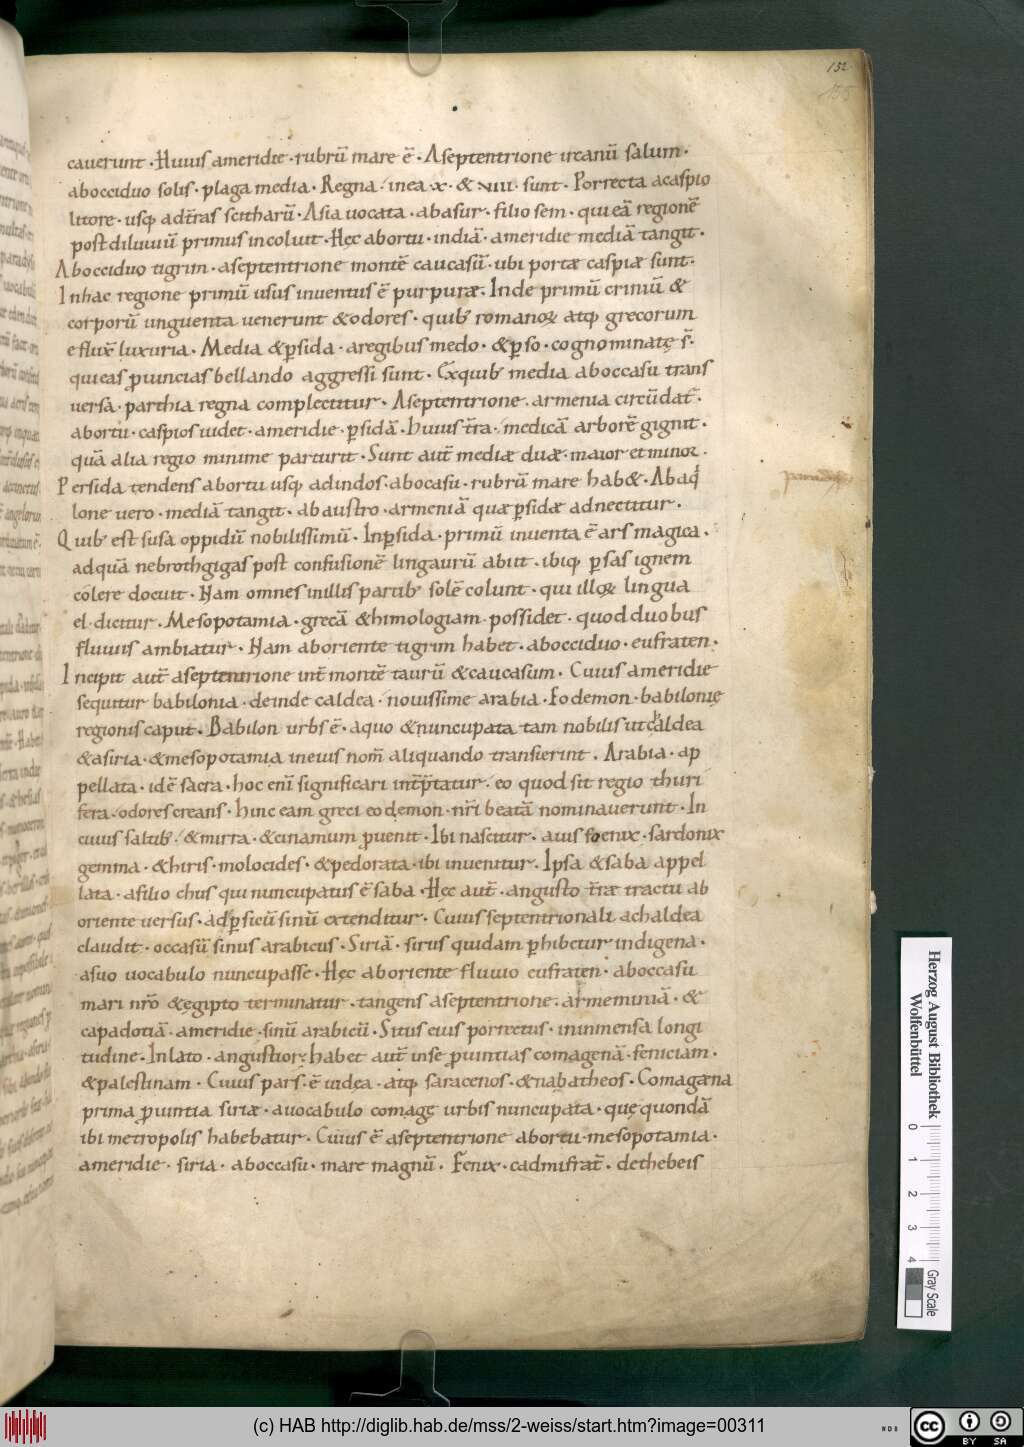 132
cauerunt · Huius ameridie · rubrū mare ē · Aseptentrione ircanū salum ·
abocciduo solis · plaga media · Regna · inea · x · & viii · sunt · Porrecta acaspio
litore · usq; adt̄ras scitharū · Asia uocata · abasur · filio sem · qui eā regionē
post diluuiū primus incoluit · Hęc abortu · indiā · ameridie mediā tangit ·
Abocciduo tigrim · aseptentrione montē caucasū · ubi portæ caspiæ sunt ·
Inhac regione primū usus inuentus ē purpuræ · Inde primū crimū &
corporū unguenta uenerunt & odores · quib; romanoꝝ atq; grecorum
efluxē luxuria · Media & ꝑsida · aregibus medo · & ꝑso · cognominatę s̄ ·
qui eas ꝓuincias bellando aggressi sunt · Exquib; media aboccasu trans
uersa · parthia regna complectitur · Aseptentrione · armenia circūdat̄ ·
abortu · caspios uidet · ameridie · ꝑsidā · huius t̄ra · medicā arborē gignit ·
quā alia regio minime parturit · Sunt aut̄ mediæ duæ · maior et minor ·
Persida tendens abortu usq; adindos · abocasu · rubrū mare hab& · Abaqi
lone uero · mediā tangit · ab austro · armeniā quæ ꝑsidæ adnectitur ·
Quib; est susa oppidū nobilissimū · Inꝑsida · primū inuenta ē ars magica ·
adquā nebrothgigas post confusionē linguarū abiit · ibiq; ꝑsas ignem
colere docuit · Nam omnes inillis partib; solē colunt · qui illoꝝ lingua
el · dicitur · Mesopotamia · grecā & himologiam · possidet · quod duobus
fluuiis ambiatur · Nam aboriente tigrim habet · abocciduo · eufraten ·
Incipit aut̄ aseptentrione int̄ montē taurū & caucasum · Cuius ameridie
sequitur babilonia · deinde caldea · nouissime arabia · Eodemon · babilonię
regionis caput · Babilon urbs ē · aquo & nuncupata tam nobilis ut caldea
& asiria · & mesopotamia ineius nom̄ aliquando transierint · Arabia · ap
pellata · idē sacra · hoc eni significari int̄p̄tatur · eo quod sit regio thuri
fera · odores creans · hinc eam greci eodemon · nr̄i beatā nominauerunt · In
cuius saltib; · & mirra · & cinamum ꝓuenit · Ibi nascitur · auis foenix · sardonix
gemma · & hiris · molocides · & pedorata · ibi inuenitur · Ipsa & saba appel
lata · afilio chus qui nuncupatus ē saba · Hęc aut̄ · angusto t̄ræ tractu ab
oriente uersus · ad ꝑsicū sinū extenditur · Cuius septentrionali achaldea
claudit · occasū sinus arabicus · Siriā · sirus quidam ꝑhibetur indigena ·
asuo uocabulo nuncupasse · Hęc aboriente fluuio eufraten · aboccasu
mari nr̄o & egipto terminatur · tangens aseptentrione · armeminiā · &
capadotiā · ameridie · sinū arabicū · Situs eius porrectus · ininmensa longi
tudine · Inlato · angustior · habet aut̄ inse ꝓuintias comagenā · feniciam ·
& palestinam · Cuius pars · ē iudea · atq; saracenos · & nabatheos · Comagæna
prima ꝓuintia siriæ · auocabulo comagę urbis nuncupata · quę quondā
ibi metropolis habebatur · Cuius ē aseptentrione abortu · mesopotamia ·
ameridie · siria · aboccasu · mare magnū · Fenix · cadmi frat̄ · dethebeis
Herzog August Bibliothek
Wolfenbüttel
0 1 2 3 4
Gray Scale
(c) HAB http://diglib.hab.de/mss/2-weiss/start.htm?image=00311
WDB
cc BY SA